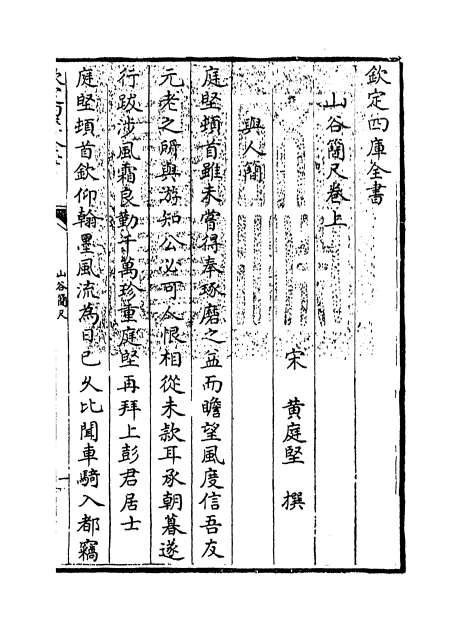 欽定四庫全書
山谷簡尺卷上
宋 黃庭堅 撰
與人簡
庭堅頓首雖未嘗得奉琢磨之益而瞻望風度信吾友
元老之所與游知公必可人恨相從未款耳承朝暮遂
行跋涉風霜良勤千萬珍重庭堅再拜上彭君居士
庭堅頓首欽仰翰墨風流為日已久比聞車騎入都竊
山谷簡尺
一